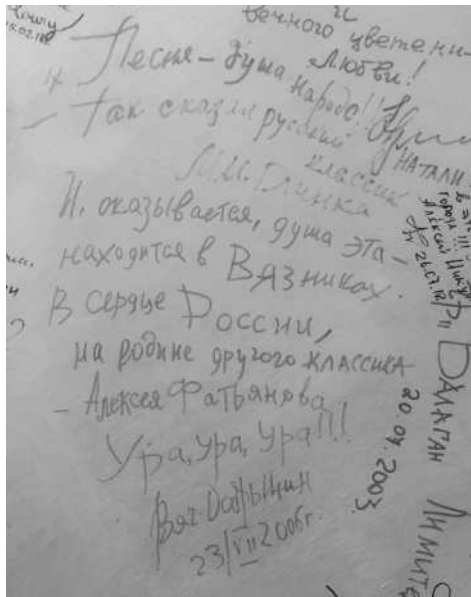 вечного цветени-
Любви!
Песня – душа
народа!!
– Так сказал русский
классик
М.И. Глинка
НАТАЛИ
И, оказывается, душа эта –
находится в Вязниках.
В сердце России,
на родине другого классика
– Алексея Фатьянова
Ура, Ура, Ура!!!
Вяч. Добрынин
23/VII 2006г.
города !!!
Алексей
ДАЛАГАН
20.07.2003
ЛИМИТЕ